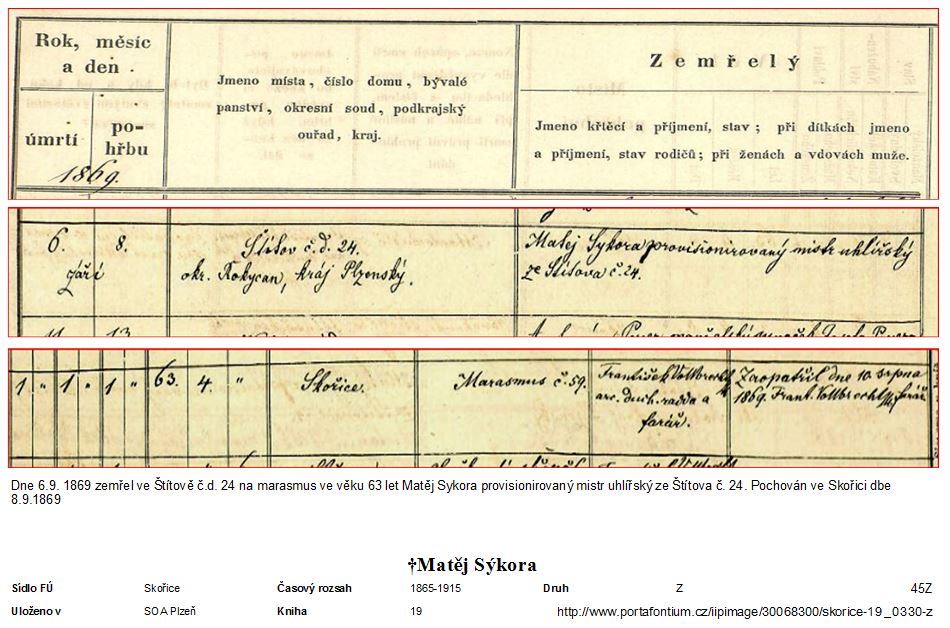 Rok, měsíc
a den
úmrtí
po-
hřbu
1869.
Jmeno místa, číslo domu, bývalé
panství, okresní soud, podkrajský
ouřad, kraj.
Zemřelý
Jmeno křtěcí a příjmení, stav; při dítkách jmeno
a příjmení, stav rodičů; při ženách a vdovách muže.
6. 8.
září
Štítov č. d. 24.
okr. Rokycan, kráj Plzenský.
Matěj Sykora provisionirovaný mistr uhlířský
ze Štítova č. 24.
11. 13.
1 " 1 " 1 " 63. 4. "
Skořice.
Marasmus č. 59.
František Vottbrecht
arc. duch. radda a
farář.
Zaopatřil dne 10. srpna
1869. Frant. Vottbrecht farář.
Dne 6.9. 1869 zemřel ve Štítově č.d. 24 na marasmus ve věku 63 let Matěj Sykora provisionirovaný mistr uhlířský ze Štítova č. 24. Pochován ve Skořici dbe
8.9.1869
†Matěj Sýkora
Sídlo FÚ Skořice Časový rozsah 1865-1915 Druh Z 45Z
Uloženo v SOA Plzeň Kniha 19 http://www.portafontium.cz/iipimage/30068300/skorice-19_0330-z